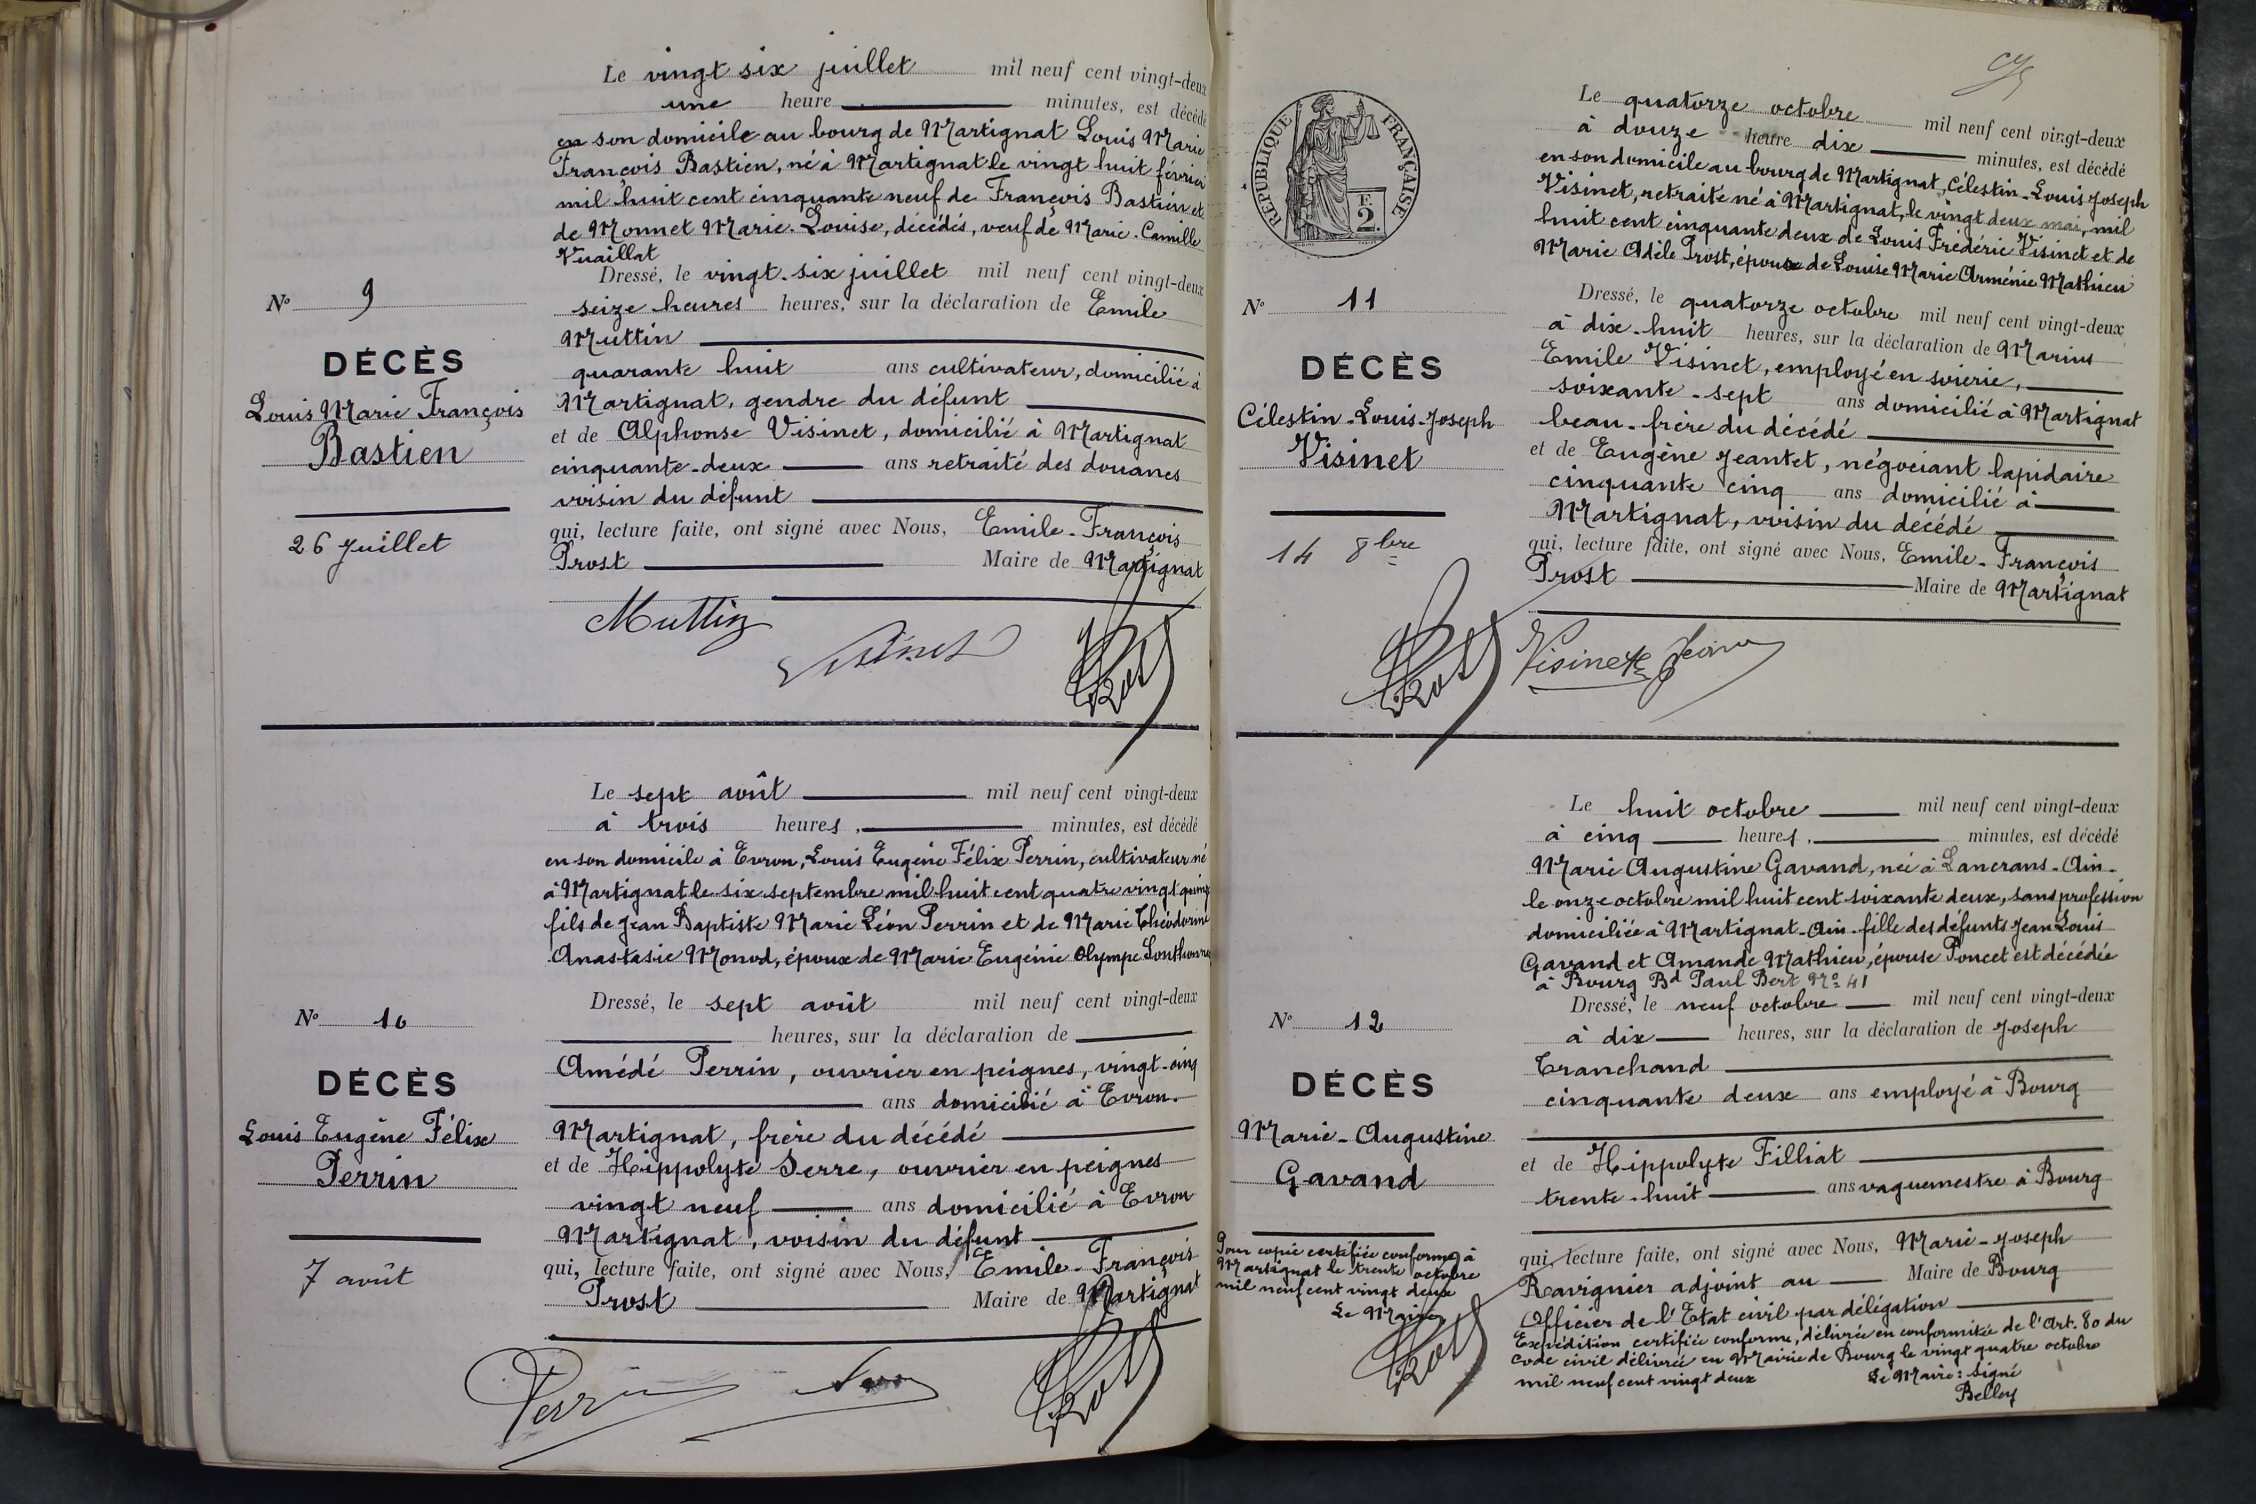 Le vingt six juillet mil neuf cent vingt-deux
une heure minutes, est décédé
en son domicile au bourg de Martignat Louis Marie
François Bastien, né à Martignat le vingt huit février
mil huit cent cinquante neuf de François Bastien et
de Monnet Marie-Louise, décédés, veuf de Marie-Camille
Vuaillat
Dressé, le vingt-six juillet mil neuf cent vingt-deux
seize heures heures, sur la déclaration de Emile
Muttin
quarante huit ans cultivateur, domicilié à
Martignat, gendre du défunt
et de Alphonse Visinet, domicilié à Martignat
cinquante-deux ans retraité des douanes
voisin du défunt
qui, lecture faite, ont signé avec Nous, Emile-François
Prost Maire de Martignat
Muttin
Visinet
Prost
N° 9
DÉCÈS
Louis Marie François
Bastien
26 Juillet
Le sept août mil neuf cent vingt-deux
à trois heures, minutes, est décédé
en son domicile à Evron, Louis Eugène Félix Perrin, cultivateur né
à Martignat le six septembre mil huit cent quatre vingt quinze
fils de Jean Baptiste Marie Léon Perrin et de Marie Théodorine
Anastasie Monod, époux de Marie Eugénie Olympe
Dressé, le sept août mil neuf cent vingt-deux
heures, sur la déclaration de
Amédé Perrin, ouvrier en peignes, vingt-cinq
ans domicilié à Evron-
Martignat, frère du décédé
et de Hippolyte Serre, ouvrier en peignes
vingt neuf ans domicilié à Evron
Martignat, voisin du défunt
qui, lecture faite, ont signé avec Nous, Emile-François
Prost Maire de Martignat
Perrin
Prost
N° 10
DÉCÈS
Louis Eugène Félix
Perrin
7 août
RÉPUBLIQUE FRANÇAISE
F.
2.
Le quatorze octobre mil neuf cent vingt-deux
à douze heure dix minutes, est décédé
en son domicile au bourg de Martignat, Célestin-Louis-Joseph
Visinet, retraité né à Martignat, le vingt deux mai, mil
huit cent cinquante deux de Louis Frédéric Visinet et de
Marie Adèle Prost, époux de Louise Marie Arménie Mathieu
Dressé, le quatorze octobre mil neuf cent vingt-deux
à dix-huit heures, sur la déclaration de Marius
Emile Visinet, employé en soierie,
soixante-sept ans domicilié à Martignat
beau-frère du décédé
et de Eugène Jeantet, négociant lapidaire
cinquante cinq ans domicilié à
Martignat, voisin du décédé
qui, lecture faite, ont signé avec Nous, Emile-François
Prost Maire de Martignat
Prost Visinet
N° 11
DÉCÈS
Célestin-Louis-Joseph
Visinet
14 8bre
Le huit octobre mil neuf cent vingt-deux
à cinq heures, minutes, est décédé
Marie Augustine Gavand, née à Lancrans-Ain-
le onze octobre mil huit cent soixante deux, sans profession
domiciliée à Martignat-Ain-fille des défunts Jean Louis
Gavand et Amande Mathieu, épouse Poncet est décédée
à Bourg Bd Paul Bert N° 41
Dressé, le neuf octobre mil neuf cent vingt-deux
à dix heures, sur la déclaration de Joseph
Tranchand
cinquante deux ans employé à Bourg
et de Hippolyte Filliat
trente-huit ans vaguemestre à Bourg
qui, lecture faite, ont signé avec Nous, Marie-Joseph
Ravignier adjoint au Maire de Bourg
Officier de l'Etat civil par délégation
Expédition certifiée conforme, délivrée en conformité de l'Art. 80 du
code civil délivrée en Mairie de Bourg le vingt quatre octobre
mil neuf cent vingt deux Le Maire: signé
Belley
N° 12
DÉCÈS
Marie-Augustine
Gavand
Pour copie certifiée conforme à
Martignat le trente octobre
mil neuf cent vingt deux
Le Maire
Prost